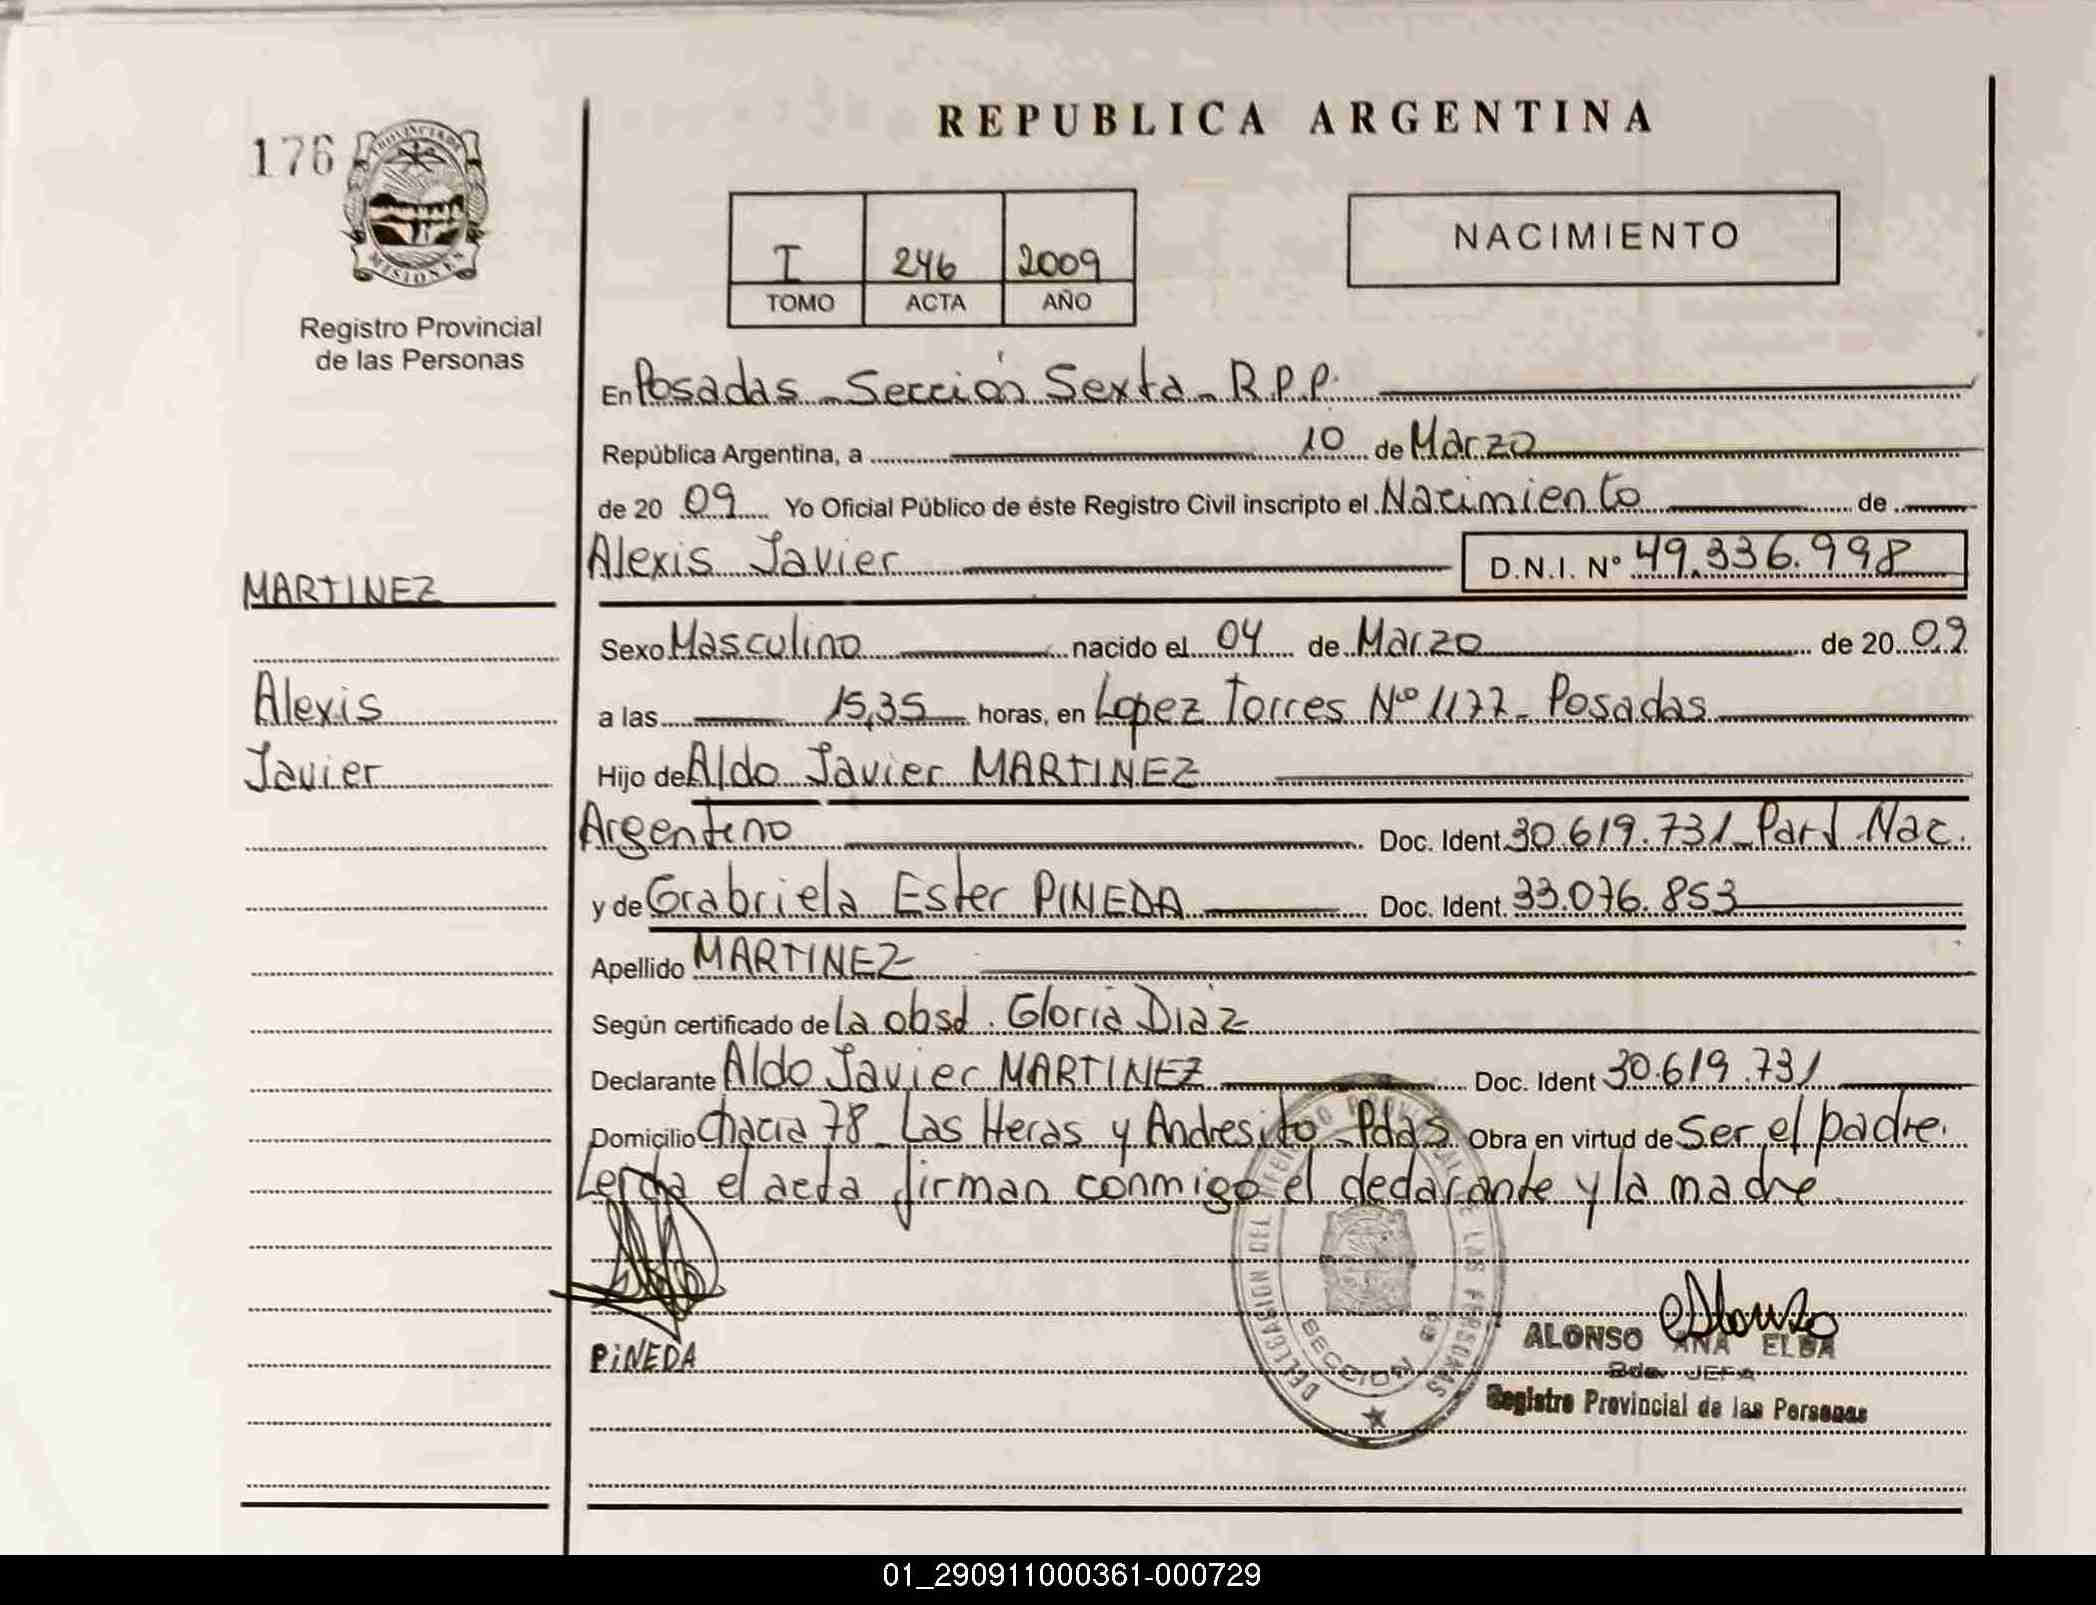 REPUBLICA ARGENTINA
176
PROVINCIA DE
MISIONES
Registro Provincial
de las Personas
I 246 2009
TOMO ACTA AÑO
NACIMIENTO
En Posadas - Sección Sexta - R.P.P.
República Argentina, a 10 de Marzo
de 20 09 Yo Oficial Público de éste Registro Civil inscripto el Nacimiento de
Alexis Javier D.N.I. Nº 49.336.998
MARTINEZ
Alexis
Javier
Sexo Masculino nacido el 04 de Marzo de 20 09
a las 15,35 horas, en Lopez Torres Nº 1177 - Posadas
Hijo de Aldo Javier MARTINEZ
Argentino Doc. Ident. 30.619.731 - Nac.
y de Gabriela Ester PINEDA Doc. Ident. 33.076.853
Apellido MARTINEZ
Según certificado de la obst. Gloria Diaz
Declarante Aldo Javier MARTINEZ Doc. Ident 30.619.731
Domicilio Chacra 78 - Las Heras y Andresito - Pdas Obra en virtud de Ser el padre.
Leída el acta firman conmigo el declarante y la madre
PiNEDA
DELEGACION DEL REGISTRO PROVINCIAL DE LAS PERSONAS
SECCION 6ª
ALONSO ANA ELBA
JEFA
Registro Provincial de las Personas
01_290911000361-000729